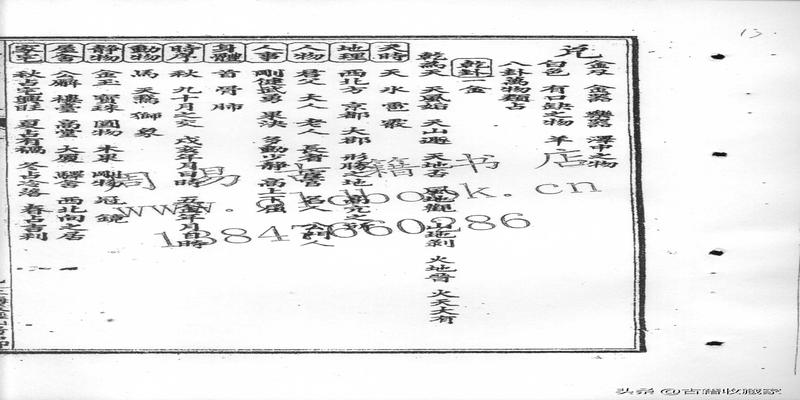 兌 金刃 金器 樂器 澤中之物
白色 有口缺之物 羊
八卦萬物類占
乾卦一 金
乾為天 天風姤 天山遯 天地否 風地觀 山地剝 火地晉 火天大有
天時 天 冰 雹 霰
地理 西北方 京都 大郡 形勝之地 高亢之所
人物 君父 大人 老人 長者 宦官 名人 公門人
人事 剛健武勇 果決 多動少靜 高上下屈
身體 首 骨 肺
時序 秋 九十月之交 戌亥年月日時 五金年月日時
動物 馬 天鵝 獅 象
靜物 金玉 寶珠 圓物 木果 剛物 冠 鏡
屋舍 公廨 樓臺 高堂 大廈 驛舍 西北向之居
家宅 秋占宅興旺 夏占有禍 冬占冷落 春占吉利
周易古籍书店
13847660286
13
头条 @古籍收藏家